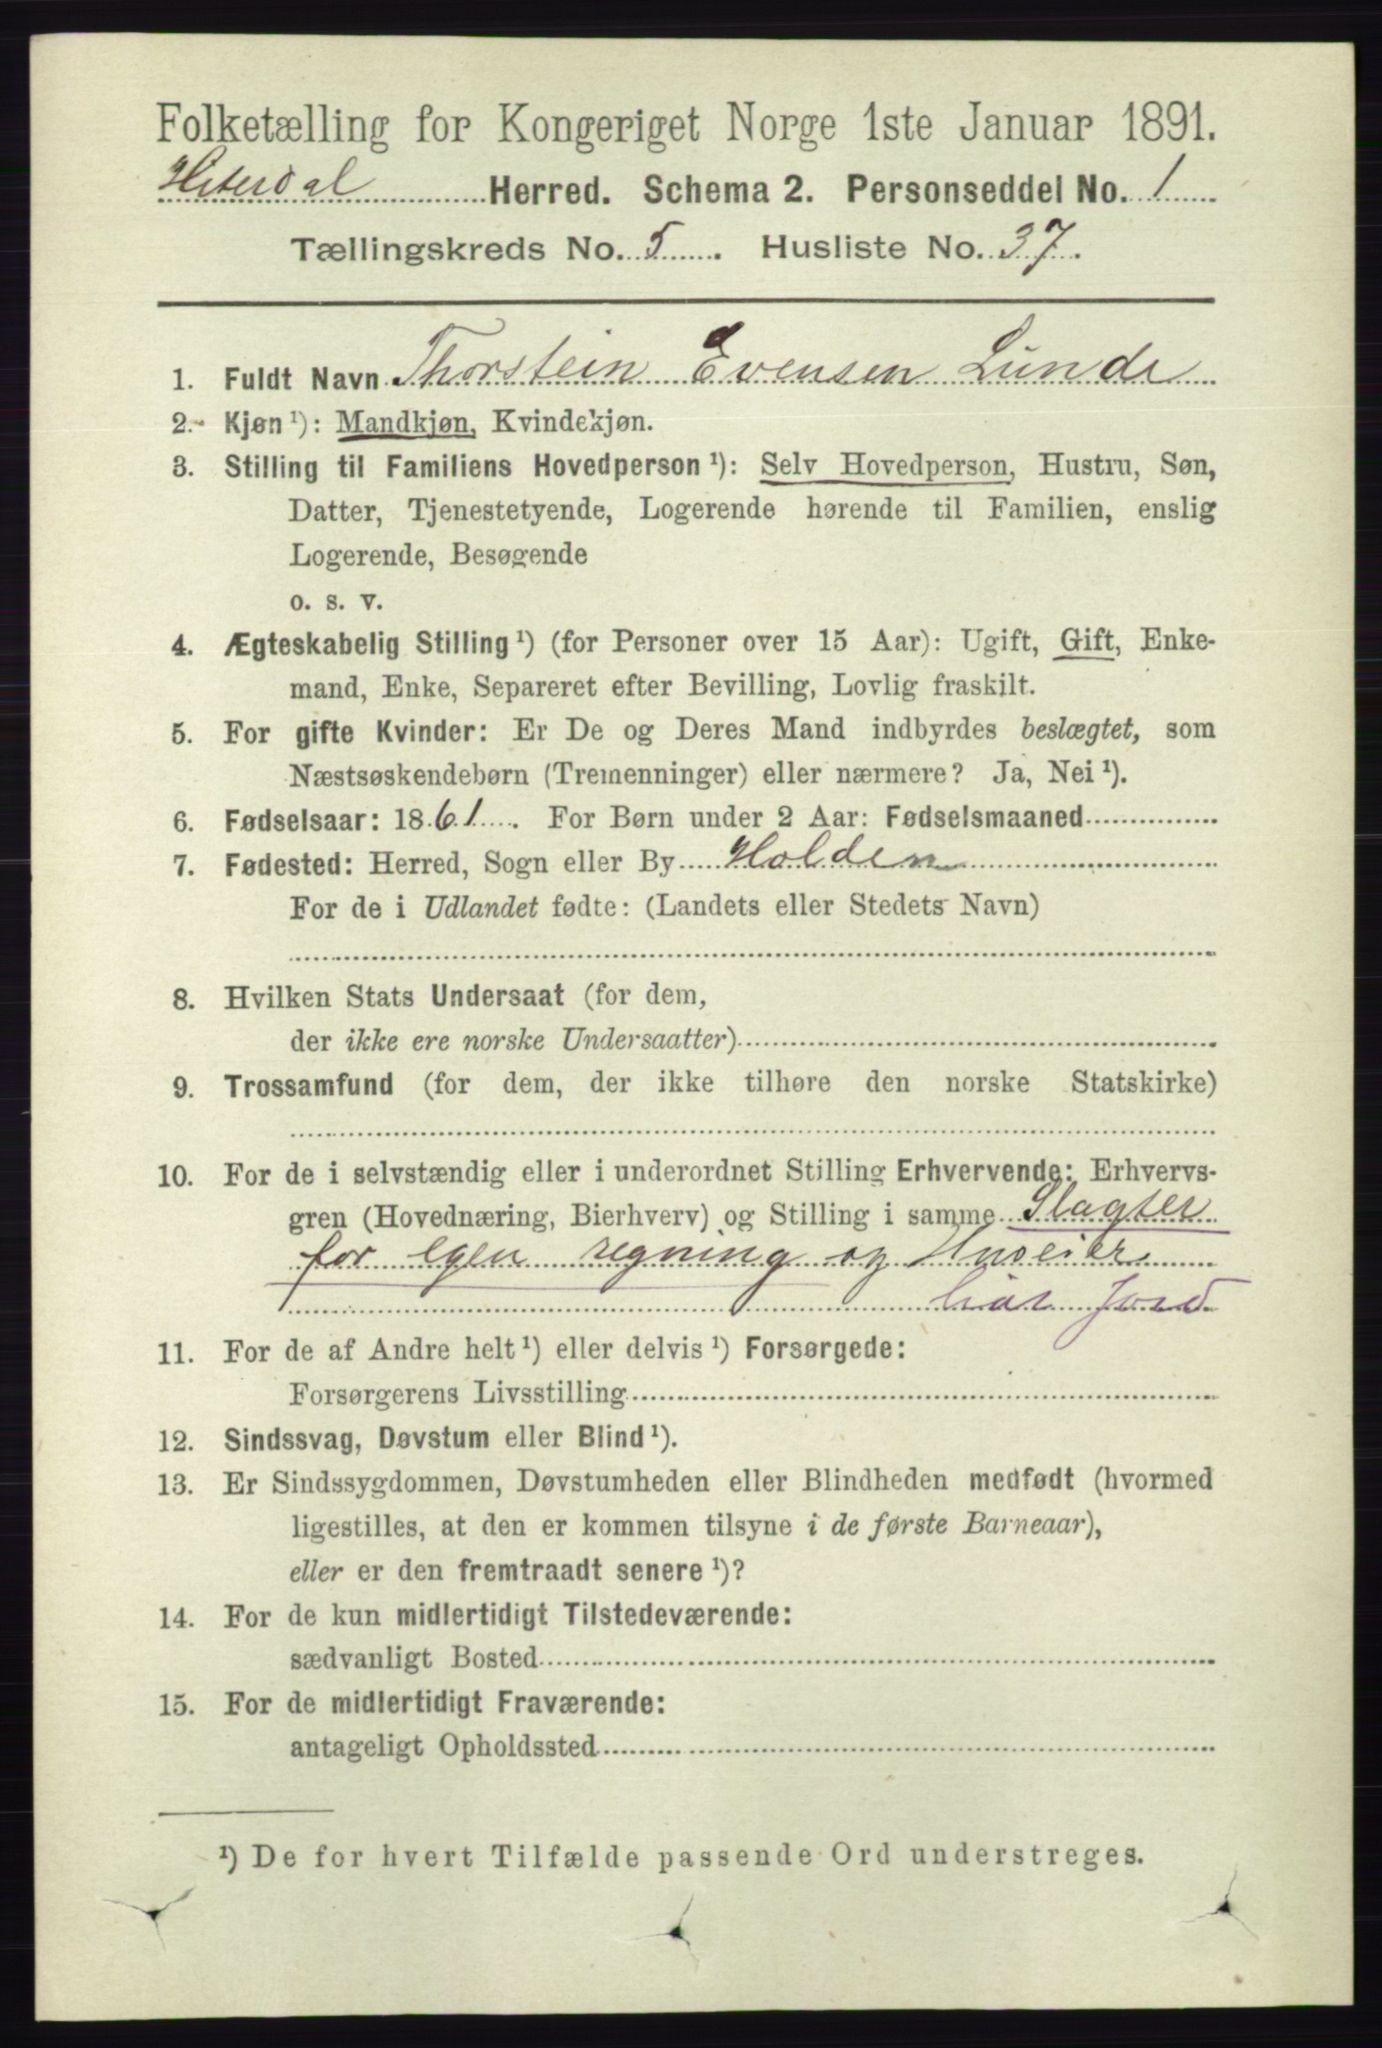 Folketælling for Kongeriget Norge 1ste Januar 1891.
Hiterdal Herred. Schema 2. Personseddel No. 1
Tællingskreds No. 5. Husliste No. 37.
1. Fuldt Navn Thorstein Evensen Lunde
2. Kjøn ¹): Mandkjøn, Kvindekjøn.
3. Stilling til Familiens Hovedperson ¹): Selv Hovedperson, Hustru, Søn,
Datter, Tjenestetyende, Logerende hørende til Familien, enslig
Logerende, Besøgende
o. s. v.
4. Ægteskabelig Stilling ¹) (for Personer over 15 Aar): Ugift, Gift, Enke-
mand, Enke, Separeret efter Bevilling, Lovlig fraskilt.
5. For gifte Kvinder: Er De og Deres Mand indbyrdes beslægtet, som
Næstsøskendebørn (Tremenninger) eller nærmere? Ja, Nei ¹).
6. Fødselsaar: 1861. For Børn under 2 Aar: Fødselsmaaned
7. Fødested: Herred, Sogn eller By Holden
For de i Udlandet fødte: (Landets eller Stedets Navn)
8. Hvilken Stats Undersaat (for dem,
der ikke ere norske Undersaatter)
9. Trossamfund (for dem, der ikke tilhøre den norske Statskirke)
10. For de i selvstændig eller i underordnet Stilling Erhvervende: Erhvervs-
gren (Hovednæring, Bierhverv) og Stilling i samme Slagter
for egen regning og Huseier
har Jord
11. For de af Andre helt ¹) eller delvis ¹) Forsørgede:
Forsørgerens Livsstilling
12. Sindssvag, Døvstum eller Blind ¹).
13. Er Sindssygdommen, Døvstumheden eller Blindheden medfødt (hvormed
ligestilles, at den er kommen tilsyne i de første Barneaar),
eller er den fremtraadt senere ¹)?
14. For de kun midlertidigt Tilstedeværende:
sædvanligt Bosted
15. For de midlertidigt Fraværende:
antageligt Opholdssted
¹) De for hvert Tilfælde passende Ord understreges.